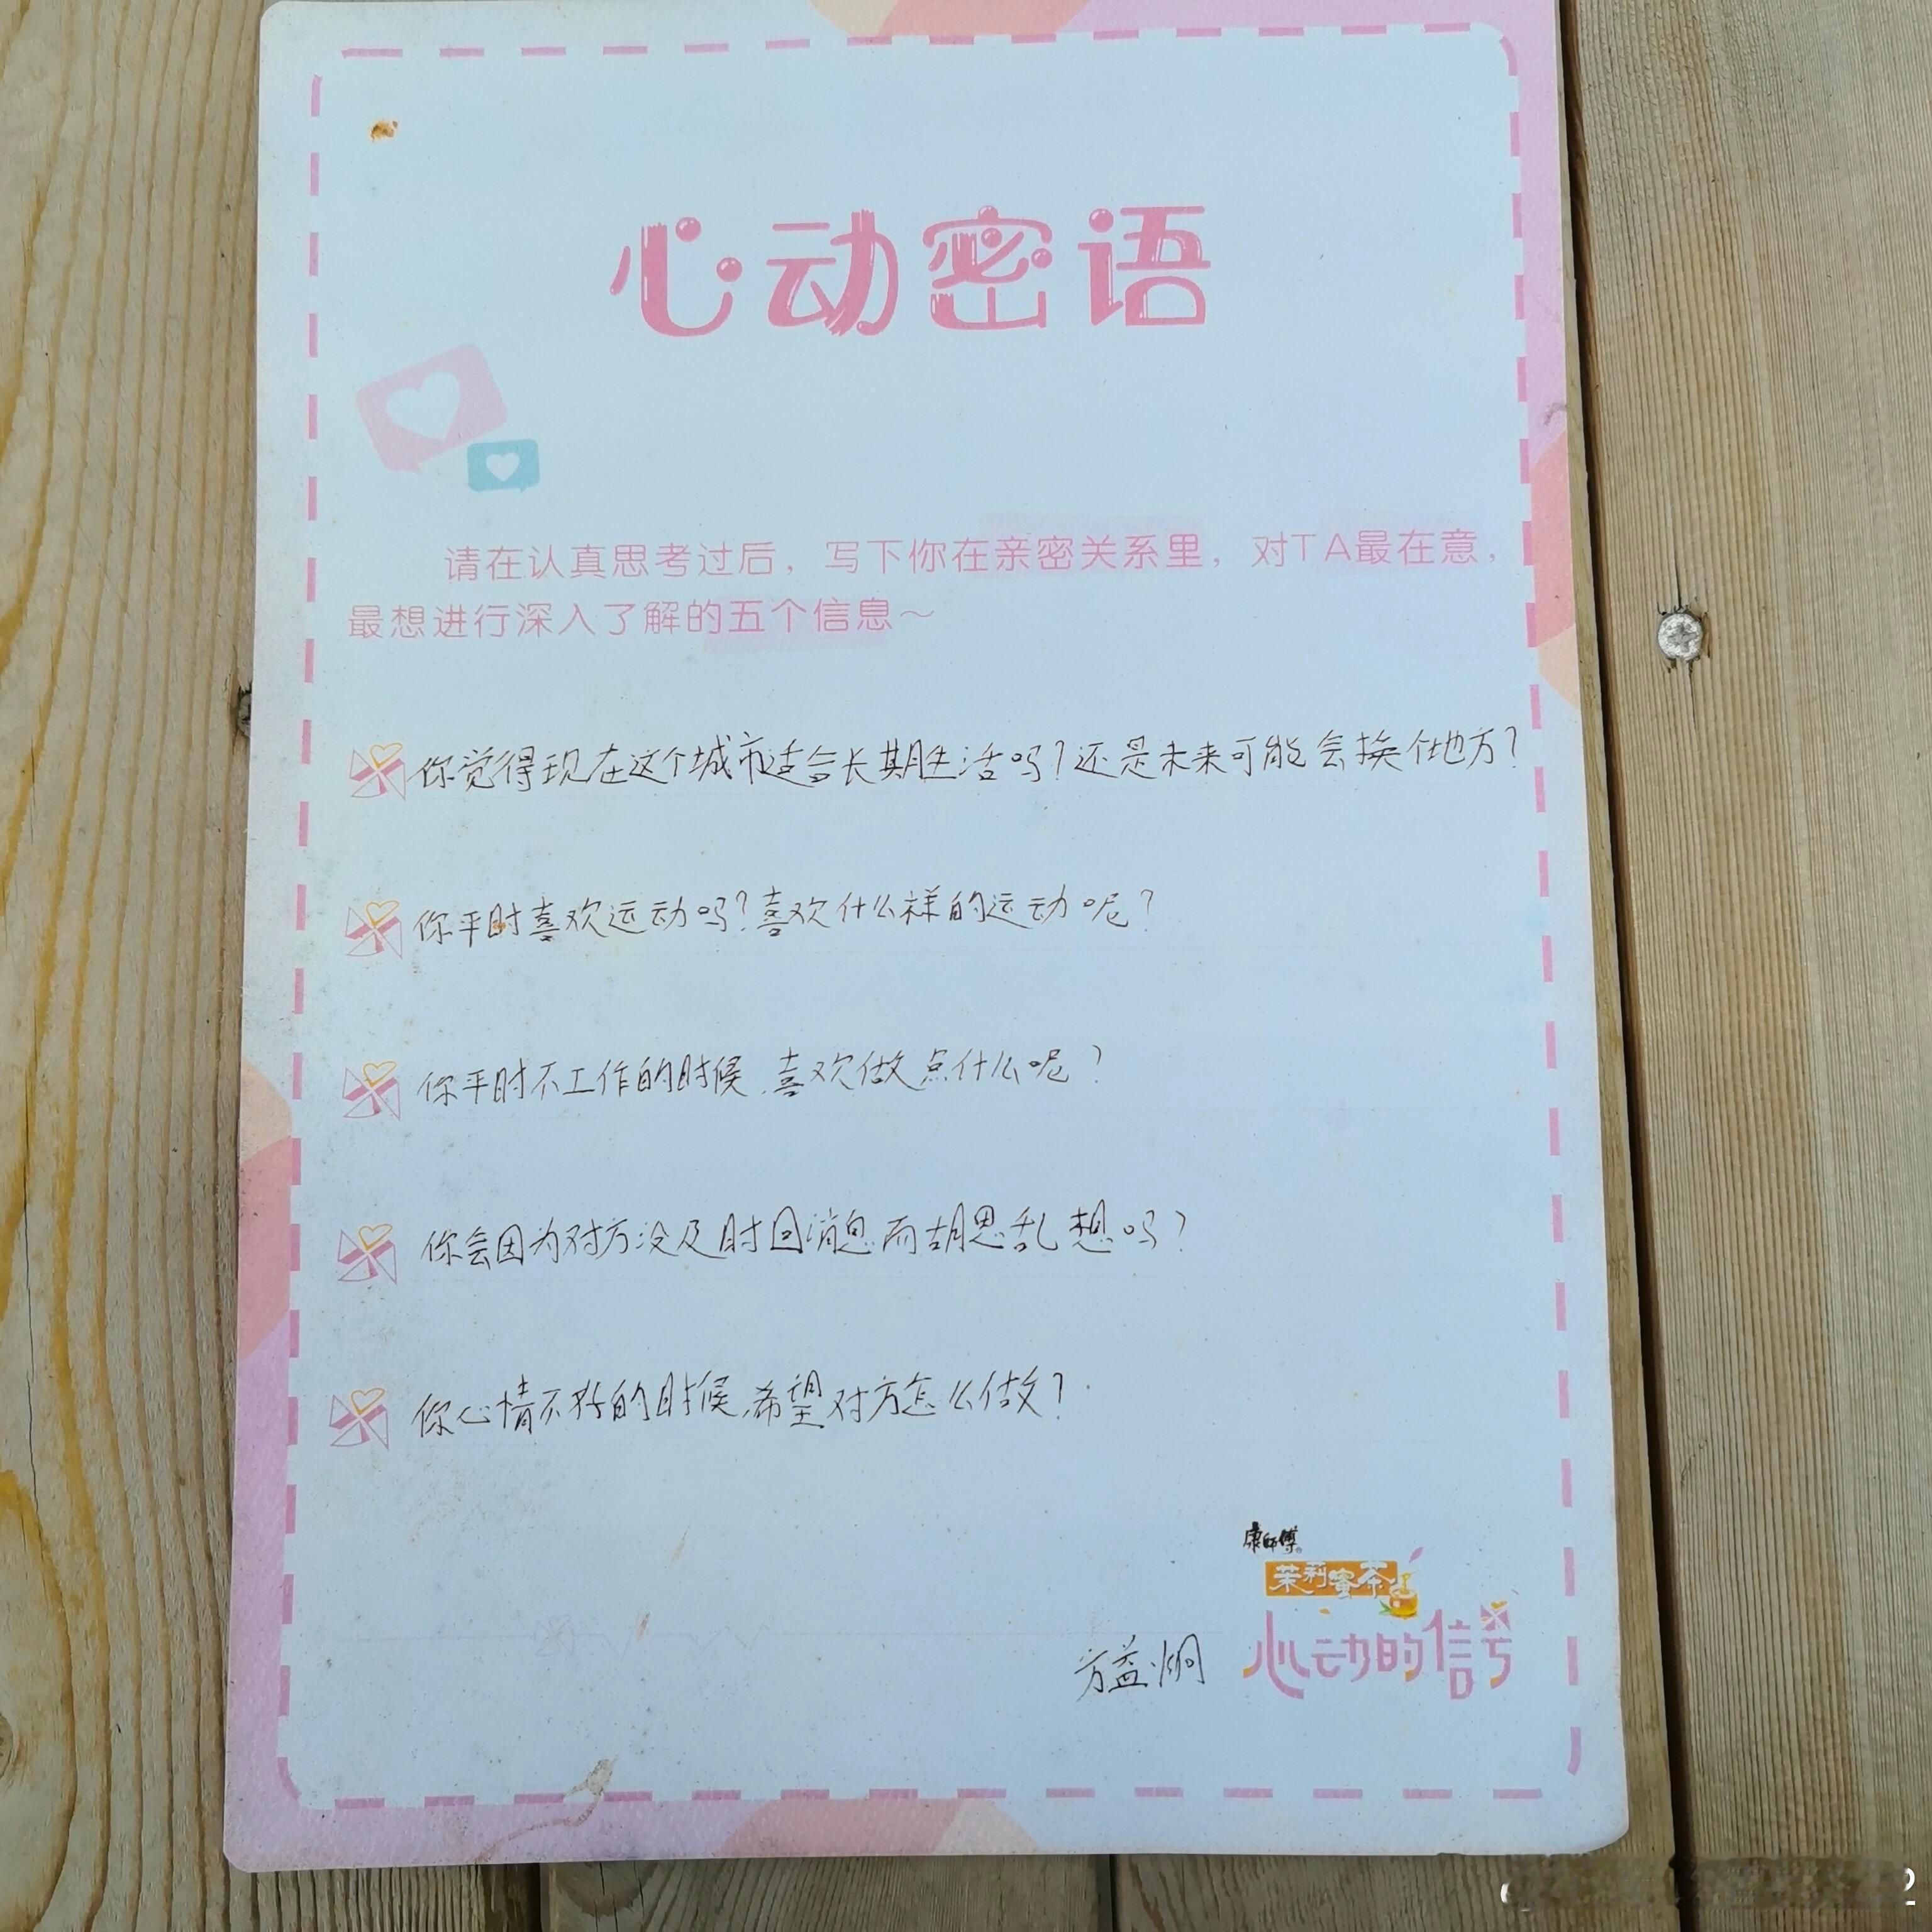 心动密语
请在认真思考过后，写下你在亲密关系里，对TA最在意，
最想进行深入了解的五个信息～
你觉得现在这个城市适合长期生活吗?还是未来可能会换个地方?
你平时喜欢运动吗?喜欢什么样的运动呢?
你平时不工作的时候,喜欢做点什么呢?
你会因为对方没及时回消息而胡思乱想吗?
你心情不好的时候,希望对方怎么做?
康師傅
茉莉蜜茶
方益炯
心动的信号